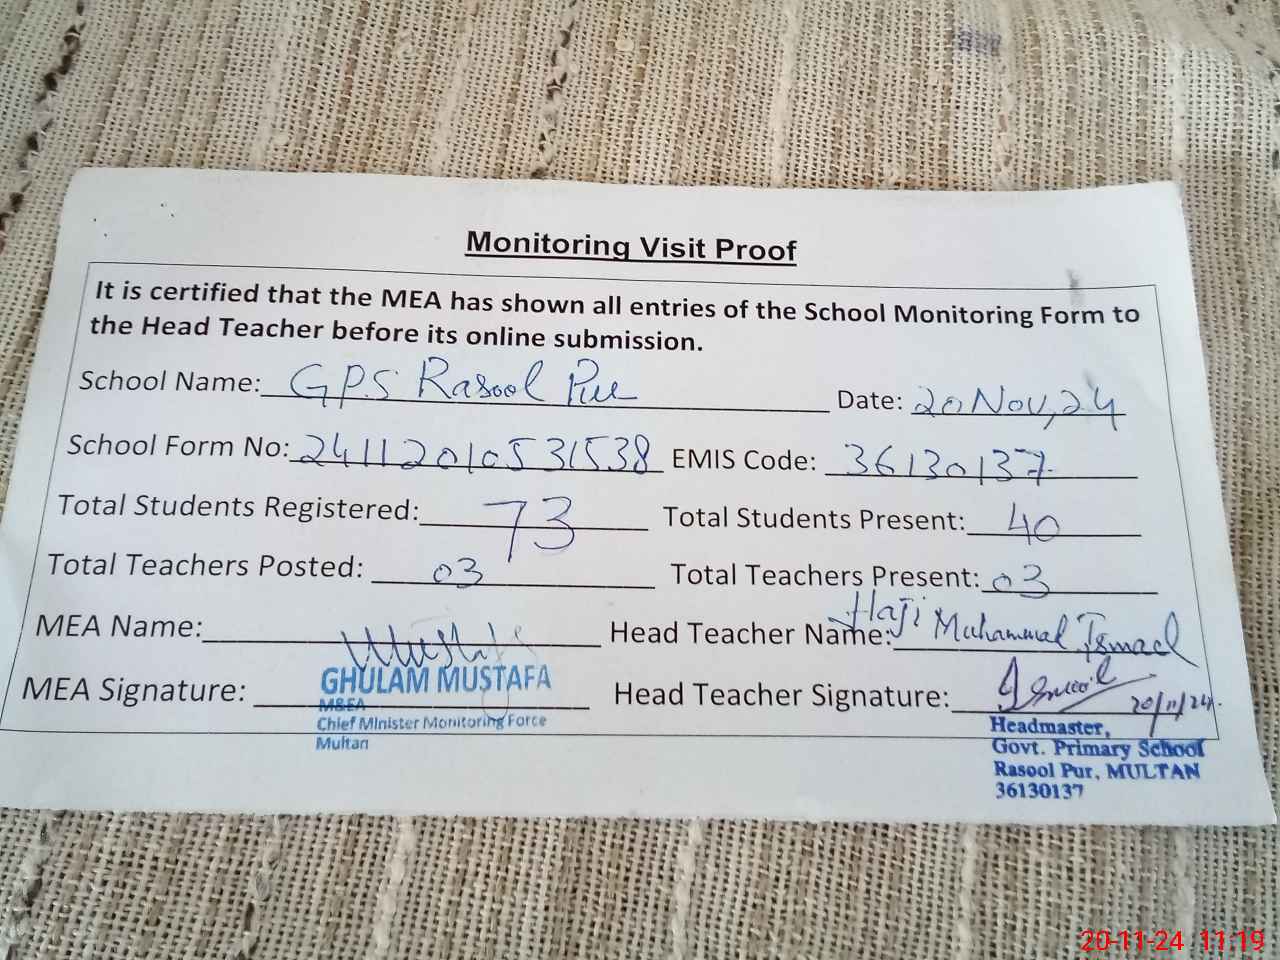 Monitoring Visit Proof
It is certified that the MEA has shown all entries of the School Monitoring Form to
the Head Teacher before its online submission.
School Name: GPS Rasool Pur Date: 20 Nov, 24
School Form No: 24112010531538 EMIS Code: 36130137
Total Students Registered: 73 Total Students Present: 40
Total Teachers Posted: 03 Total Teachers Present: 03
MEA Name: Head Teacher Name: Haji Muhammad Ismael
MEA Signature: Mustafa Head Teacher Signature: Ismail 20/11/24.
GHULAM MUSTAFA
M&EA
Chief Minister Monitoring Force
Multan
Headmaster,
Govt. Primary School
Rasool Pur, MULTAN
36130137
20-11-24 11:19